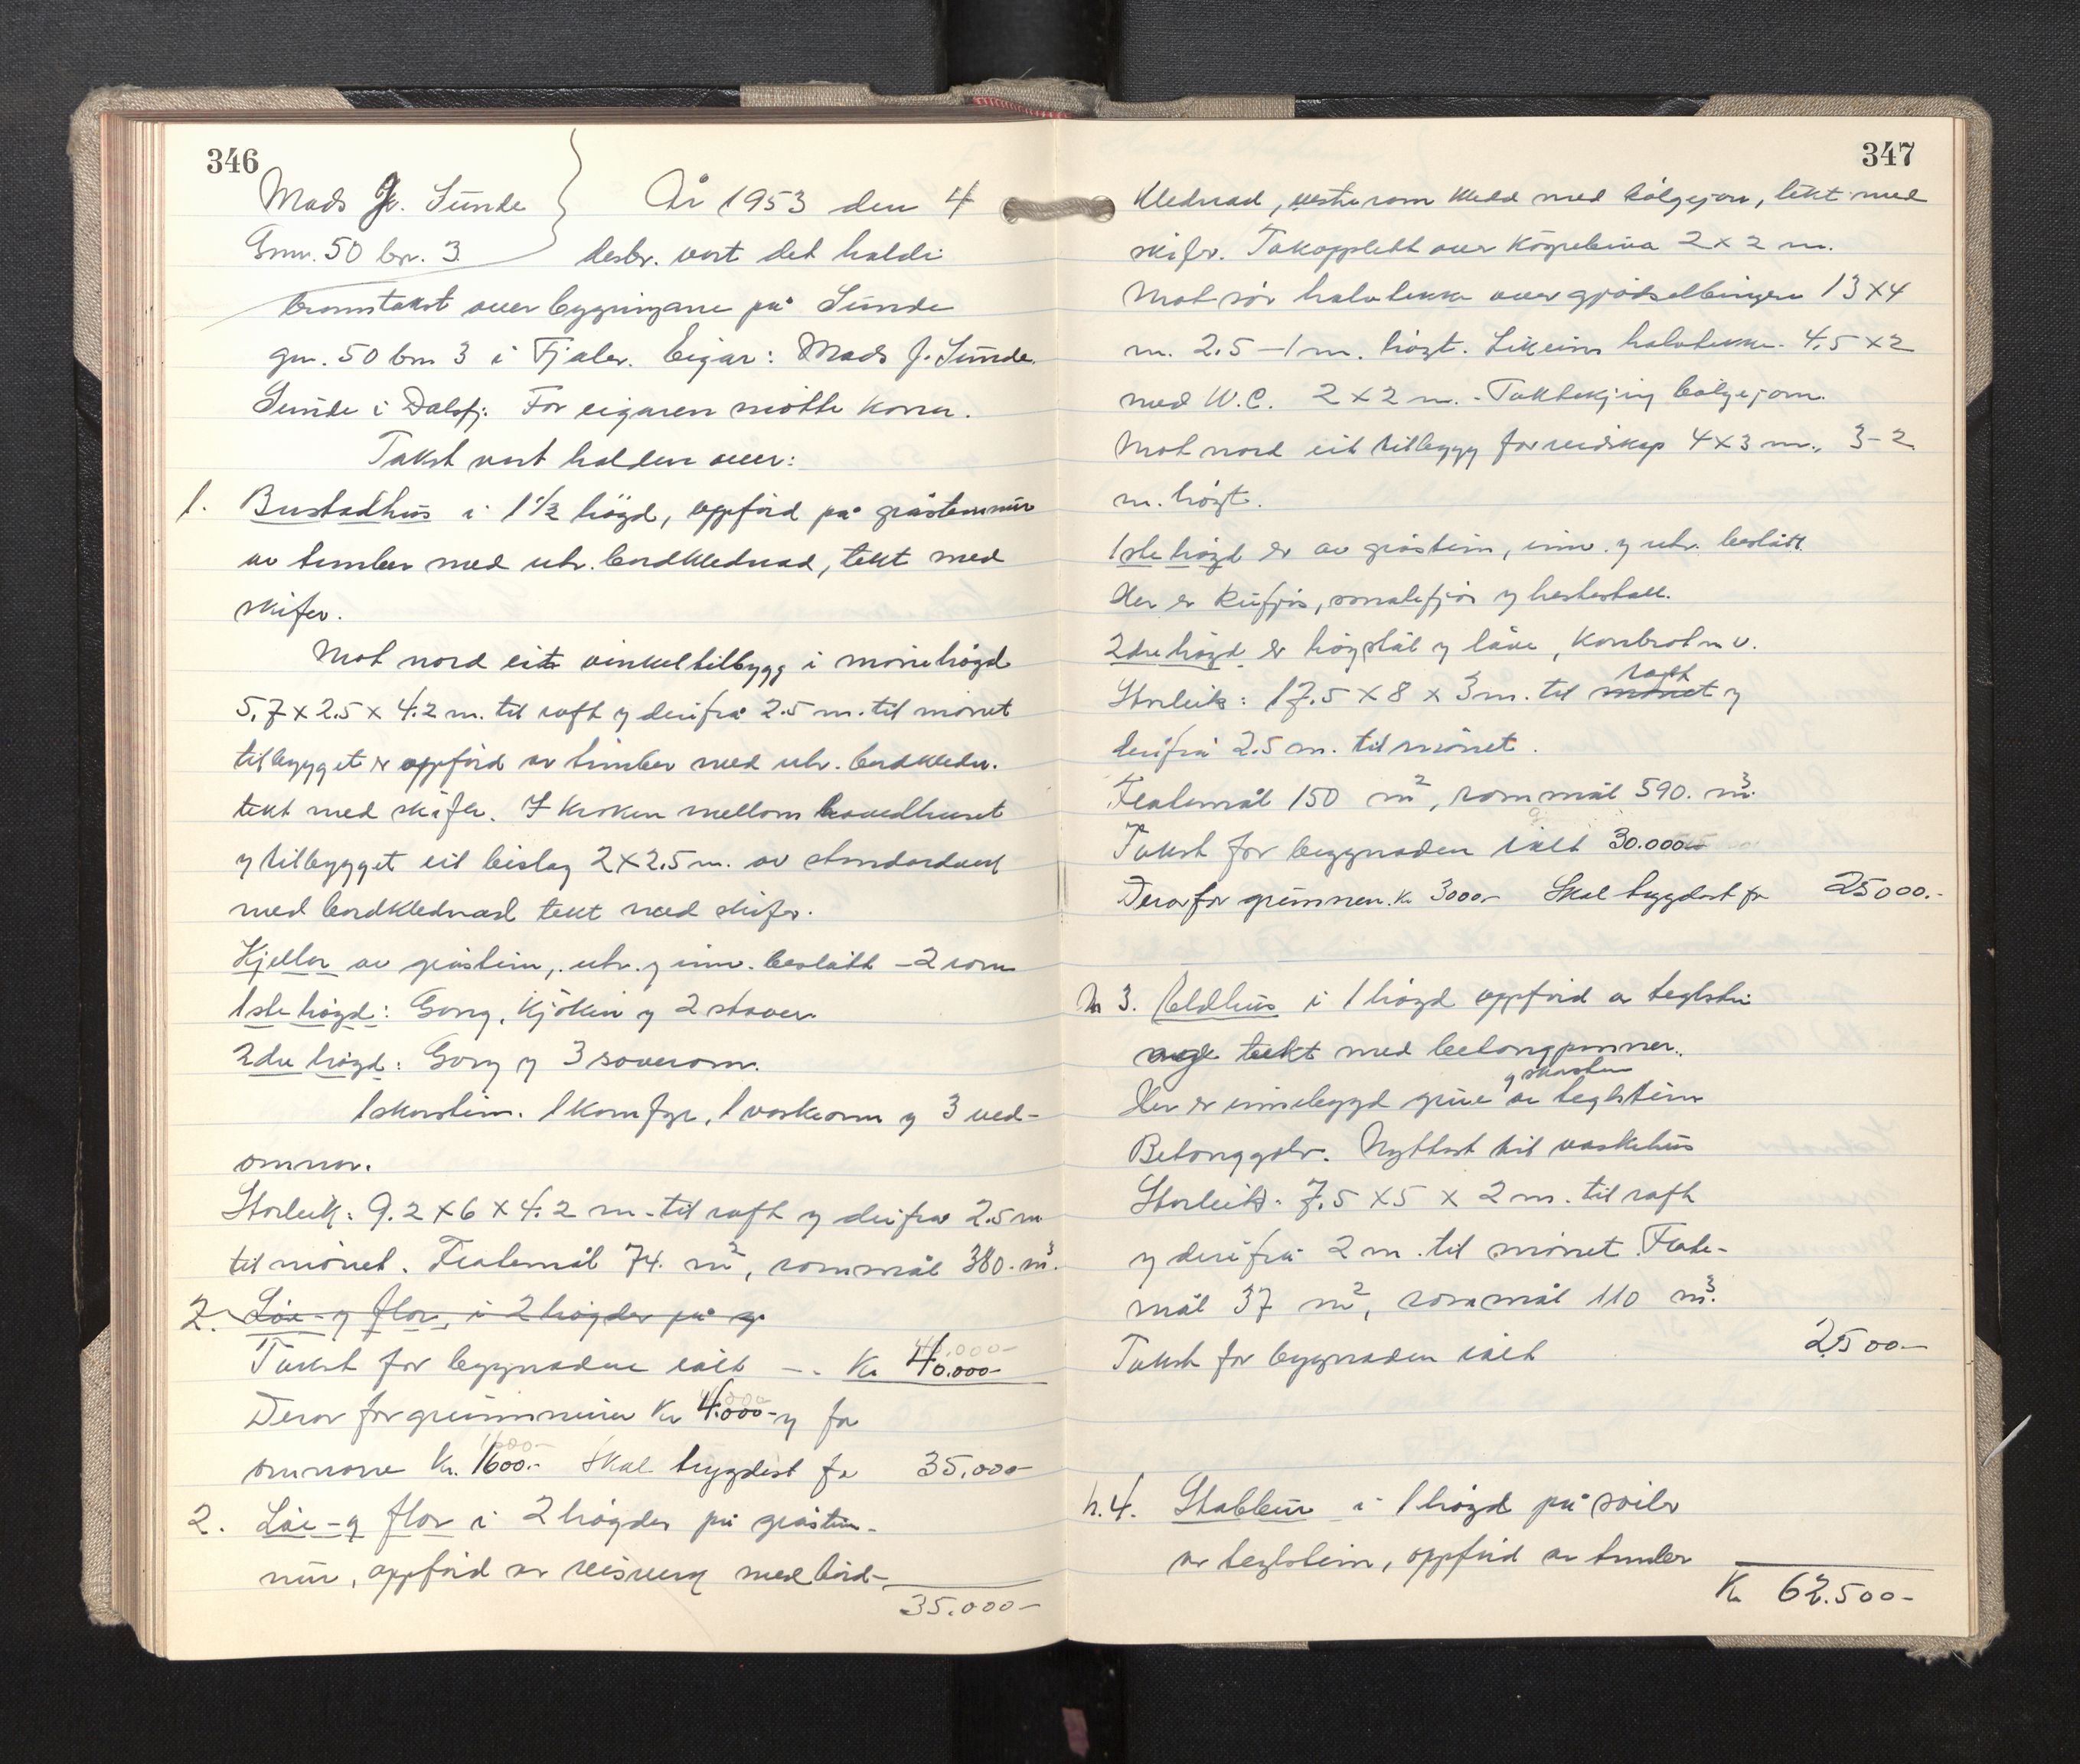 346
Mads J. Sunde
Gnr. 50 br. 3
År 1953 den 4
desbr. vart det haldi
branntakst over bygningane på Sunde
gn. 50 bn 3 i Fjaler. Eigar: Mads J. Sunde.
Sunde i Dalsfj. For eigaren møtte kona.
Takst vart halden over:
1. Bustadhus i 1½ högd, oppförd på gråsteinmur
av tømber med utv. bordklednad, tekt med
skifer.
Mot nord eit vinkeltilbygg i mönehögd
5,7 x 2.5 x 4.2 m. til raft og derifrå 2.5 m. til mönet
tilbygget er oppförd av timber med utv. bordkledn.
tekt med skifer. I kroken mellom hovedhuset
og tilbygget eit bislag 2x2.5 m. av standardverk
med bordklednad tekt med skifer.
Kjellar av gråstein, utv. og innv. beslått - 2 rom
1ste högd: Gong, kjöken og 2 stover.
2dre högd: Gong og 3 soverom.
1 skorstein. 1 komfyr, 1 vaskeomn og 3 ved-
omnar.
Storleik: 9.2 x 6 x 4.2 m. til raft og derifrå 2.5 m
til mönet. Flatemål 74. m², rommål 380. m³.
2. Löe- og flor, i 2 högder på g
Takst for bygnaden ialt - . Kr 40.000-
Derav for grunnmuren Kr 4.000- og for
omnane kr. 1600.- Skal trygdast for 35.000-
2. Löe- og flor i 2 högder på gråstein-
mur, oppförd av reisverk med bord-
35.000-
347
klednad, vestre rom kledd med bölgejarn, tekt med
skifer. Takopplett over köyrebrua 2 x 2 m.
Mot sör halvtekke over gjödselbingen 13 x 4
m. 2.5 - 1 m. högt. Likeins halvtekke 4.5 x 2
med W.C. 2 x 2 m. - Taktekjing bölgejarn.
Mot nord eit tilbygg for reidskap 4 x 3 m., 3-2
m. högt.
1ste högd er av gråstein, innv. og utv. beslått.
Her er kufjös, smalefjös og hestestall.
2dre högd er höystål og låve, kornbrot m.v.
Storleik: 17.5 x 8 x 3 m. til mönet raft og
derifrå 2.5 m. til mönet.
Flatemål 150 m², rommål 590. m³.
Takst for bygnaden ialt 30.000
Derav for grunnen. kr 3000.- Skal trygdast for 25000.-
Nr 3. Eldhus i 1 högd oppförd av teglstein
tekt med betongpanner.
Her er innebygd grue og skorstein av teglstein
Betonggolv. Nyttast til vaskehus
Storleik: 7.5 x 5 x 2 m. til raft
og derifrå 2 m. til mönet. Flate-
mål 37 m², rommål 110 m³.
Takst for bygnaden ialt 2500-
n.4. Stabbur i 1 högd på söiler
av teglstein, oppförd av tømber
Kr 62.500-